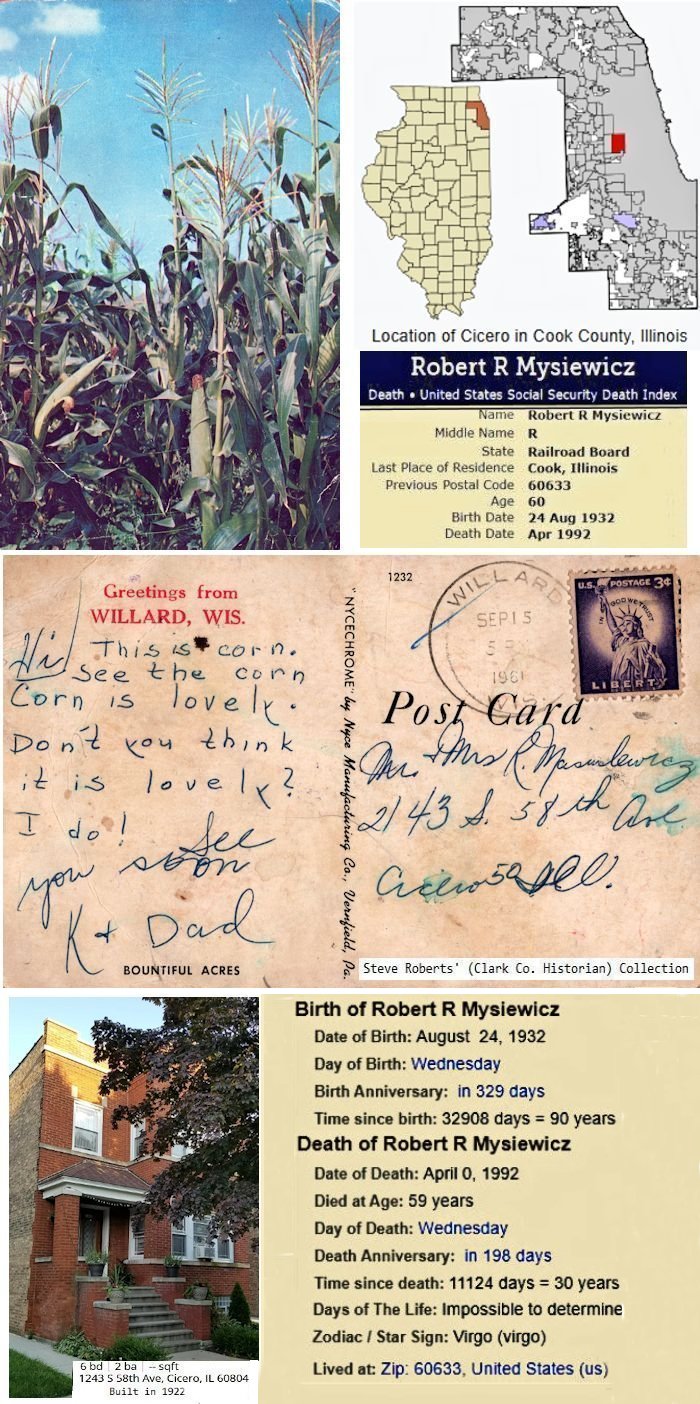 Location of Cicero in Cook County, Illinois
Robert R Mysiewicz
Death • United States Social Security Death Index
Name Robert R Mysiewicz
Middle Name R
State Railroad Board
Last Place of Residence Cook, Illinois
Previous Postal Code 60633
Age 60
Birth Date 24 Aug 1932
Death Date Apr 1992
Greetings from
WILLARD, WIS.
Hi This is corn.
See the corn
Corn is lovely.
Don't you think
it is lovely?
I do! See
you soon
K + Dad
BOUNTIFUL ACRES
"NYCECHROME" by Nyce Manufacturing Co., Vernfield, Pa.
1232
WILLARD
SEP 15
1961
WIS.
U.S. POSTAGE 3¢
IN GOD WE TRUST
LIBERTY
Post Card
Mr. & Mrs R.
2143 S. 58th Ave
Cicero 50 Ill.
Steve Roberts' (Clark Co. Historian) Collection
6 bd | 2 ba | -- sqft
1243 S 58th Ave, Cicero, IL 60804
Built in 1922
Birth of Robert R Mysiewicz
Date of Birth: August 24, 1932
Day of Birth: Wednesday
Birth Anniversary: in 329 days
Time since birth: 32908 days = 90 years
Death of Robert R Mysiewicz
Date of Death: April 0, 1992
Died at Age: 59 years
Day of Death: Wednesday
Death Anniversary: in 198 days
Time since death: 11124 days = 30 years
Days of The Life: Impossible to determine
Zodiac / Star Sign: Virgo (virgo)
Lived at: Zip: 60633, United States (us)